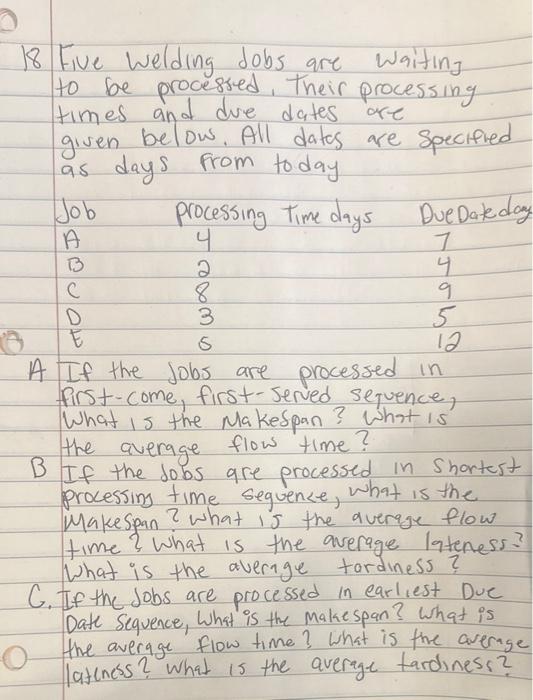 18 Five welding Jobs are waiting
to be processed. Their processing
times and due dates are
given below. All dates are specified
as days from today
Job processing Time days Due Date day
A 4 7
B 2 4
C 8 9
D 3 5
E 12
A If the Jobs are processed in
first-come, first-served sequence,
What is the Makespan? What is
the average flow time?
B If the Jobs are processed in shortest
processing time sequence, what is the
Makespan? what is the average flow
time? What is the average lateness?
What is the average tardiness?
C. If the Jobs are processed in earliest Due
Date Sequence, What is the makespan? What is
the average flow time? What is the average
lateness? What is the average tardiness?